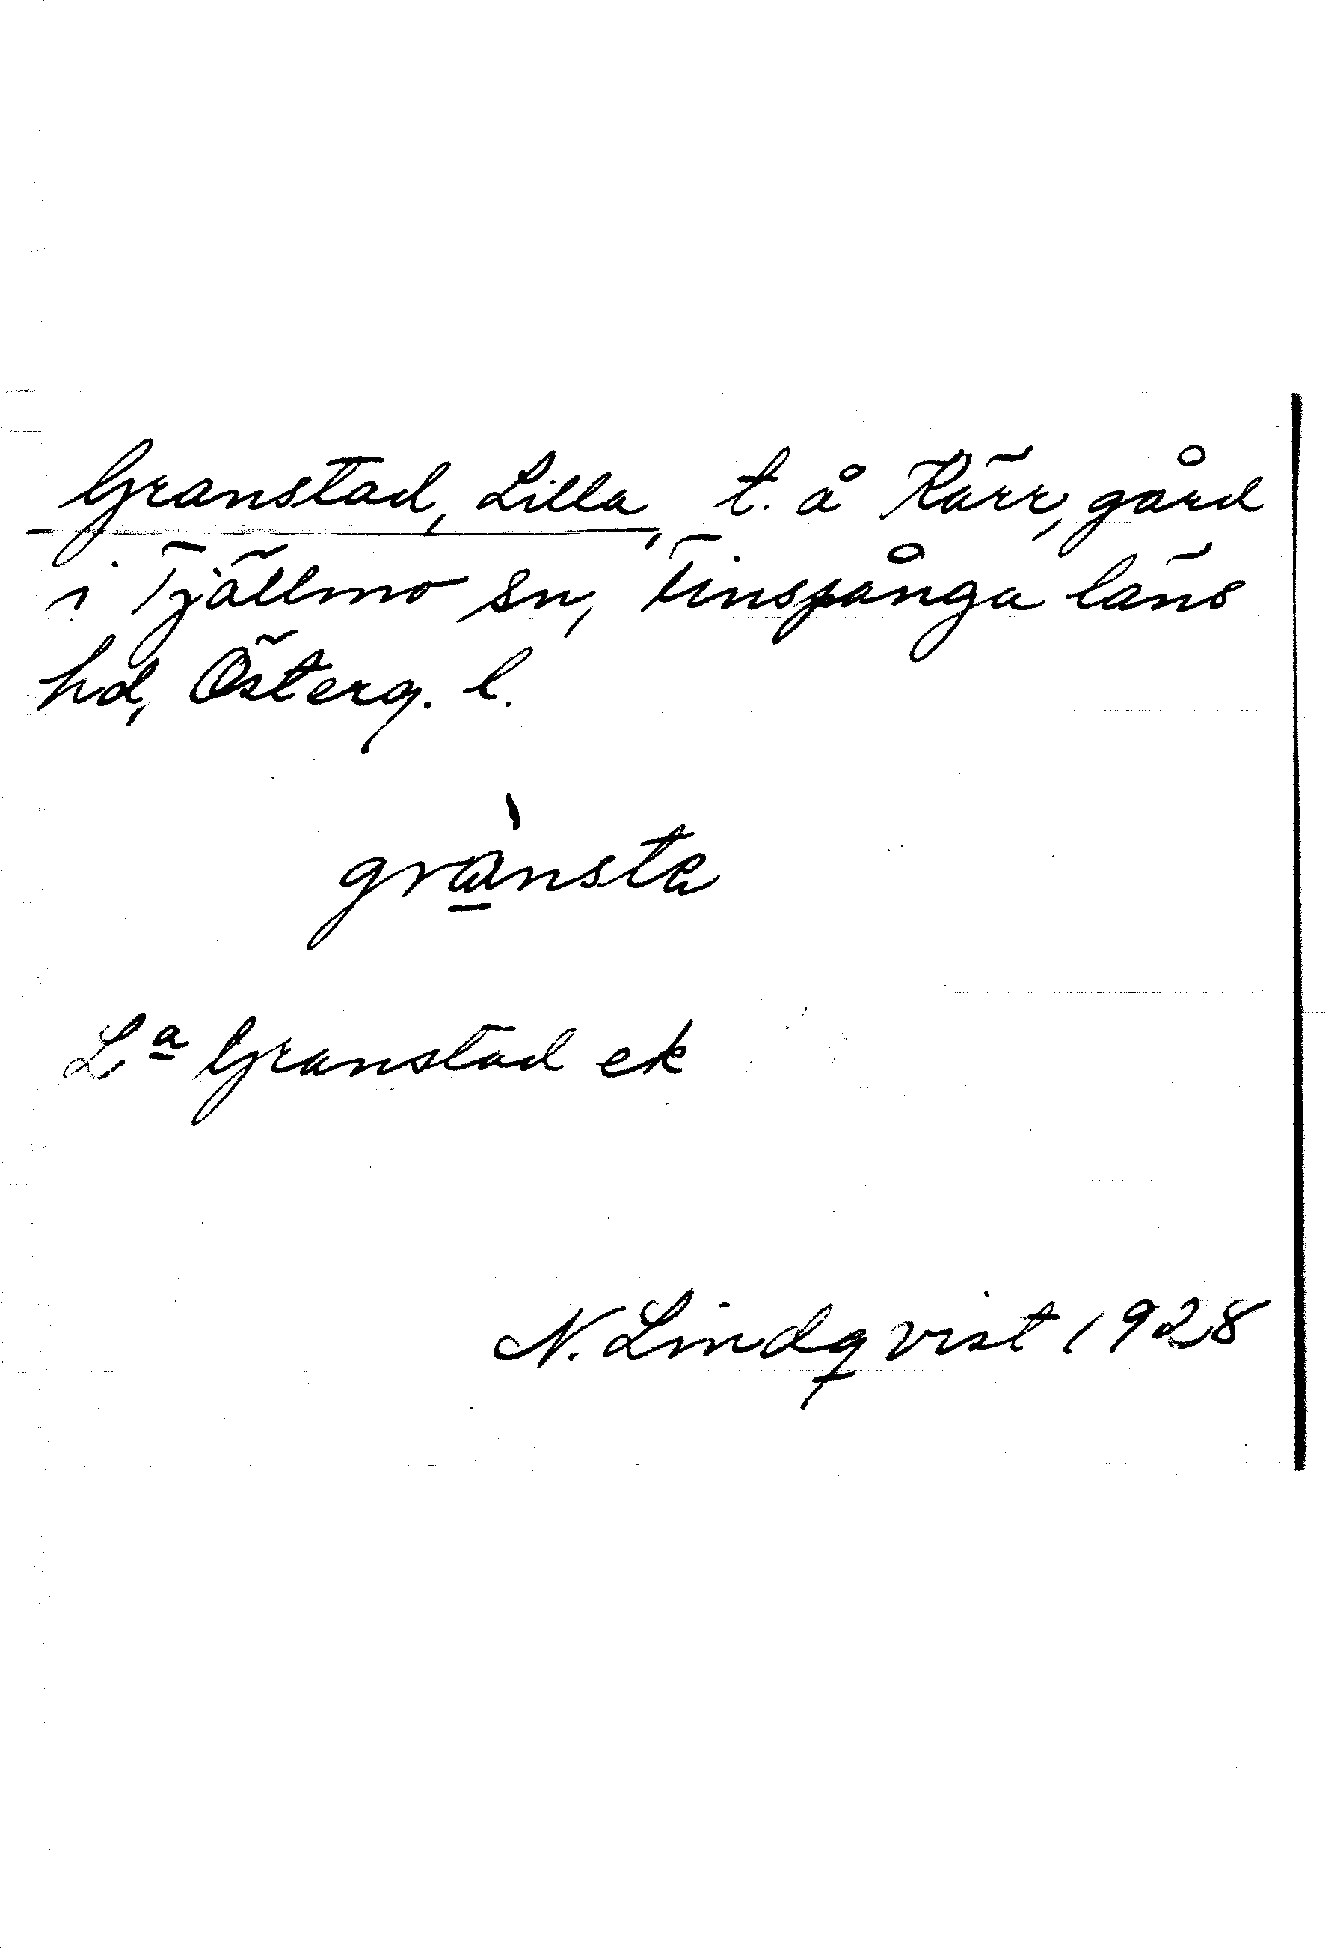 Granstad, Lilla, t. å Kärr, gård
i Tjällmo sn, Finspånga läns
hd, Österg. l.
grànsta
Lª Granstad ek
N. Lindqvist 1928